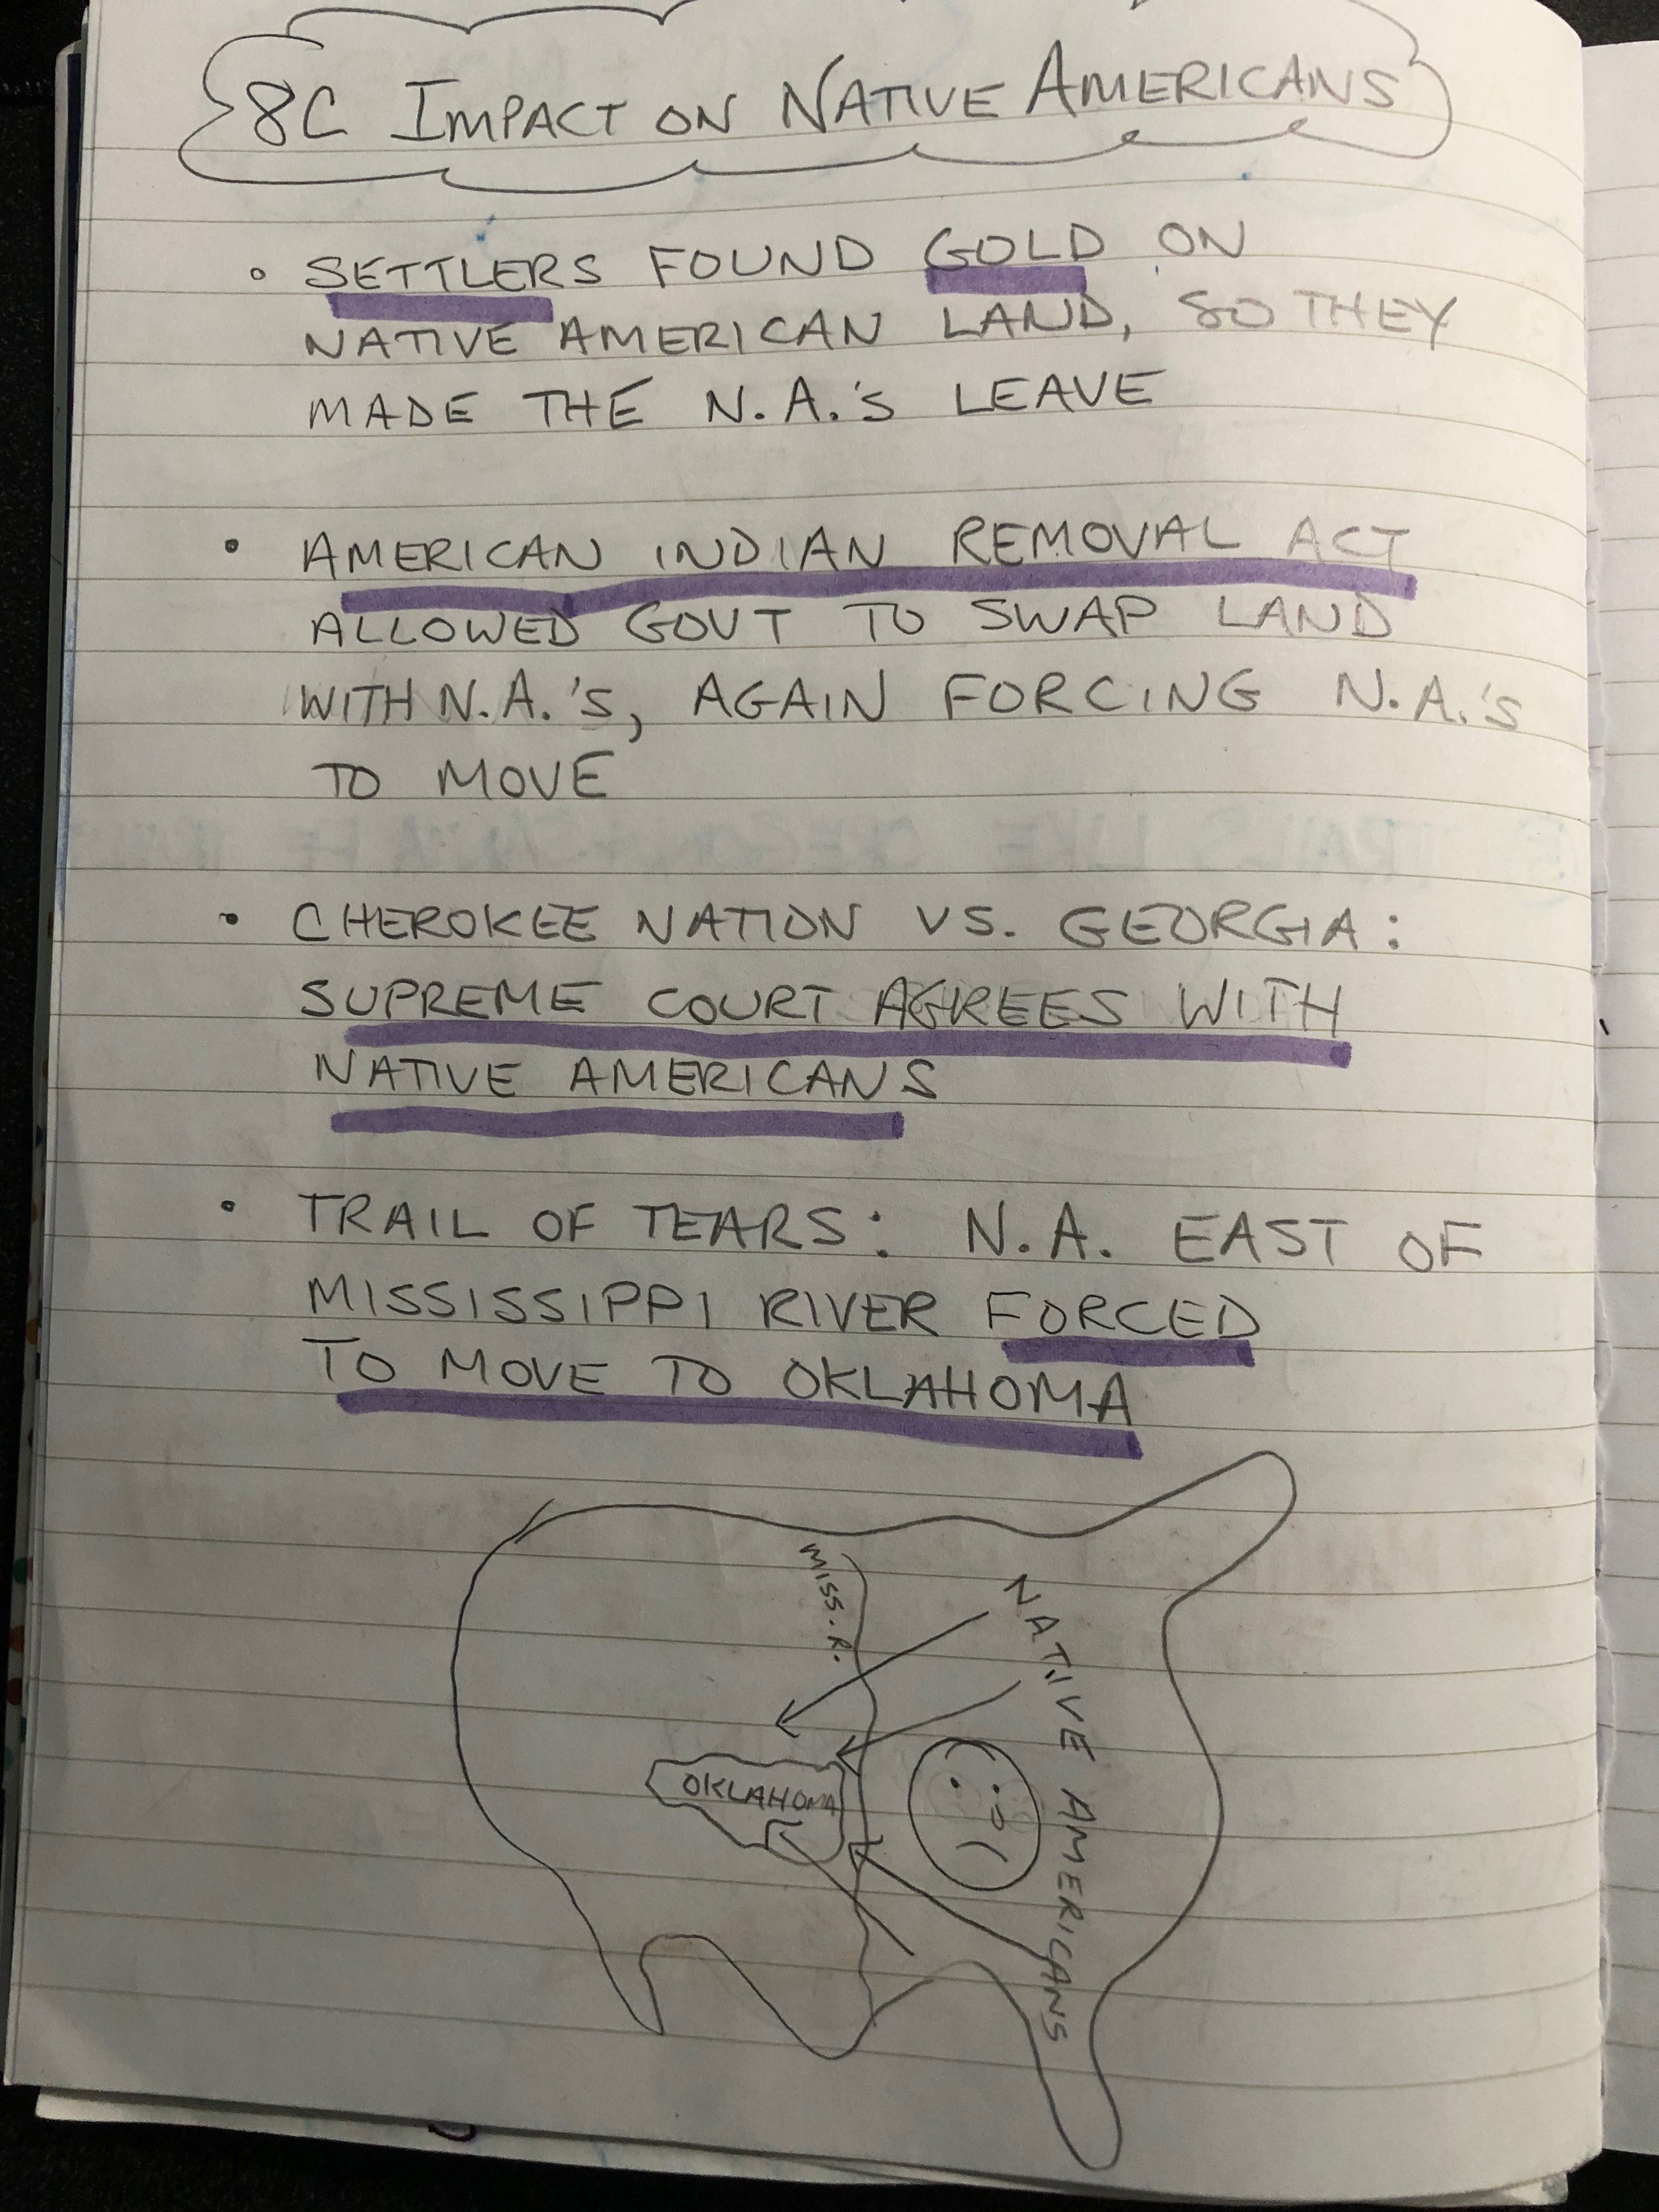 8C IMPACT ON NATIVE AMERICANS
• SETTLERS FOUND GOLD ON
NATIVE AMERICAN LAND, SO THEY
MADE THE N.A.'s LEAVE
• AMERICAN INDIAN REMOVAL ACT
ALLOWED GOVT TO SWAP LAND
WITH N.A.'s, AGAIN FORCING N.A.'s
TO MOVE
• CHEROKEE NATION VS. GEORGIA:
SUPREME COURT AGREES WITH
NATIVE AMERICANS
• TRAIL OF TEARS: N.A. EAST OF
MISSISSIPPI RIVER FORCED
TO MOVE TO OKLAHOMA
MISS. R.
NATIVE AMERICANS
OKLAHOMA